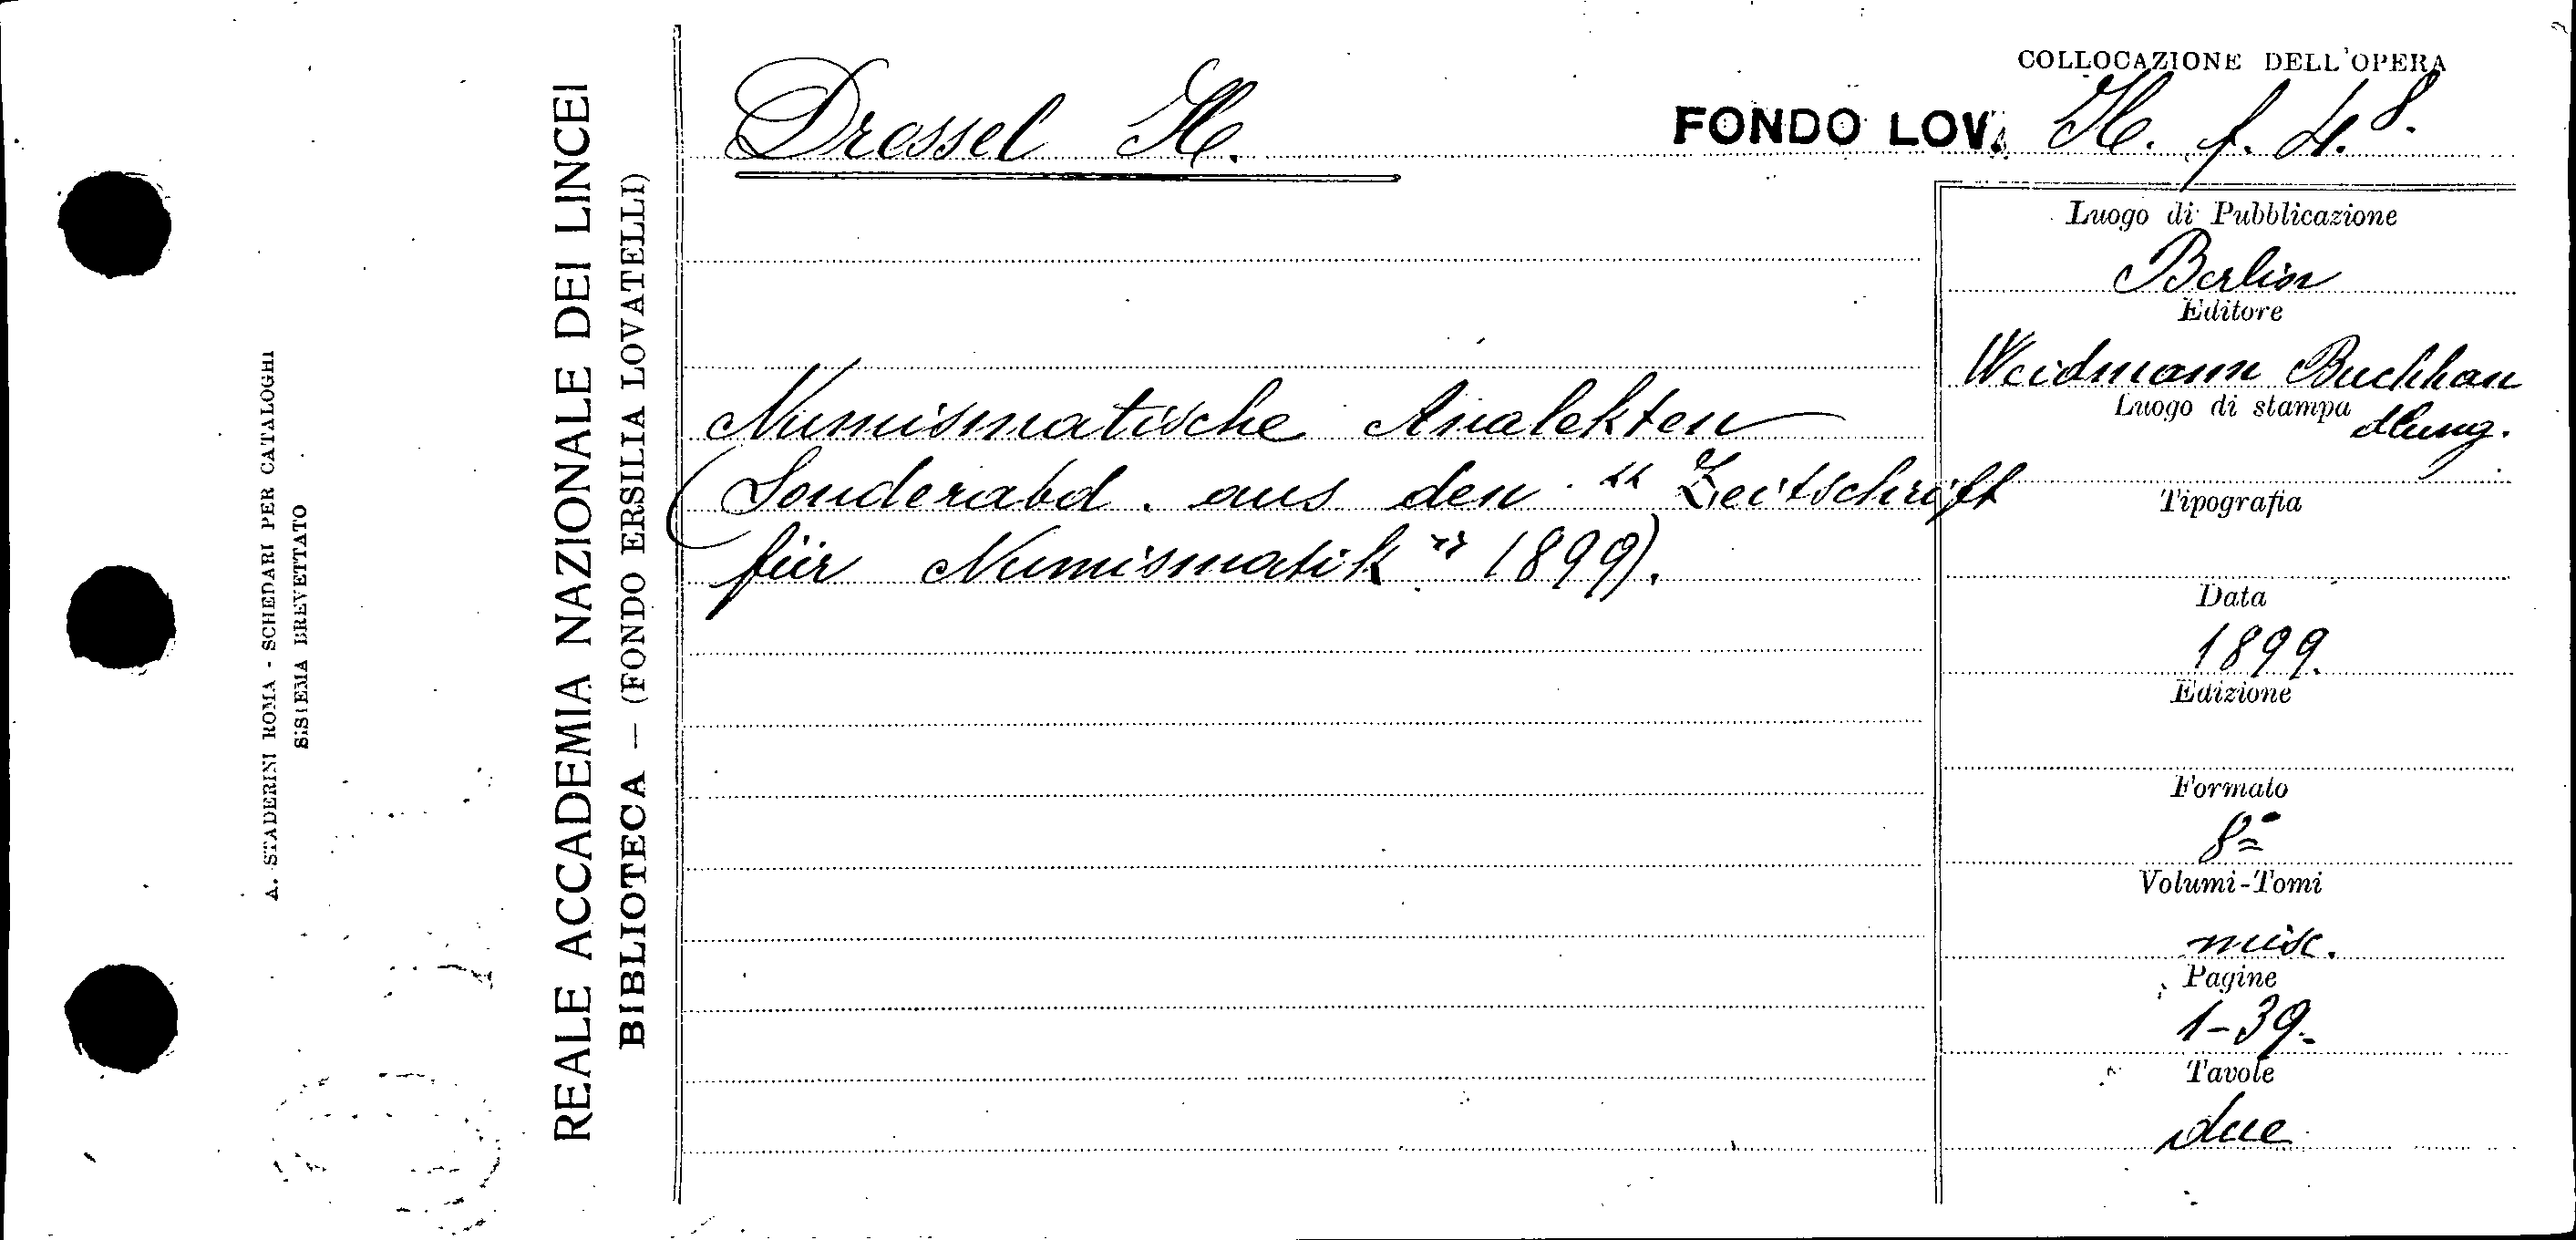 A. STADERINI ROMA - SCHEDARI PER CATALOGHI
SISTEMA BREVETTATO
REALE ACCADEMIA NAZIONALE DEI LINCEI
BIBLIOTECA — (FONDO ERSILIA LOVATELLI)
Dressel H.
COLLOCAZIONE DELL'OPERA
FONDO LOV. H. f. 4. 8.
Numismatische Analekten
(Sonderabd. aus den "Zeitschrift
für Numismatik" 1899).
Luogo di Pubblicazione
Berlin
Editore
Weidmann Buchhan
dlung.
Luogo di stampa
Tipografia
Data
1899.
Edizione
Formato
8º
Volumi-Tomi
misc.
Pagine
1-39.
Tavole
due